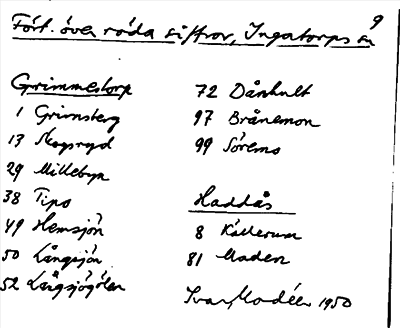 9
Fört. över röda siffror, Ingatorps sn
Grimmestorp
1 Grimsberg
13 Skogsryd
29 Millebyn
38 Tipo
49 Hemsjön
50 Långsjön
52 Långsjögölen
72 Dånhult
97 Brånemon
99 Söremo
Haddås
8 Källerum
81 Maden
Ivar Modéer 1950